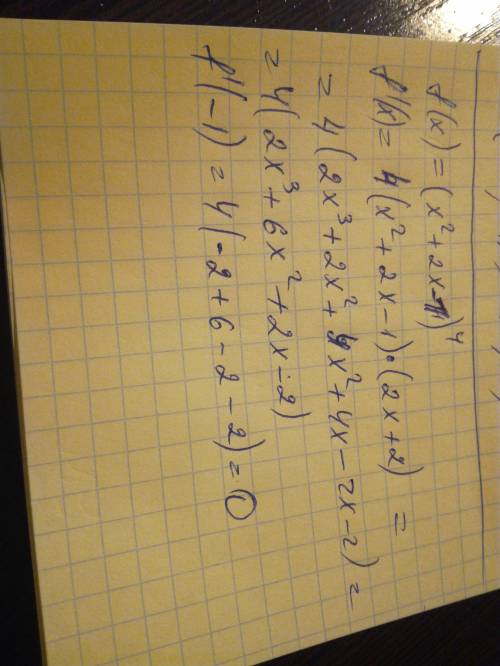 f(x) = (x²+2x-1)⁴
f'(x) = 4(x²+2x-1)·(2x+2) =
= 4(2x³+2x²+4x²+4x-2x-2) =
= 4(2x³+6x²+2x-2)
f'(-1) = 4(-2+6-2-2) = 0